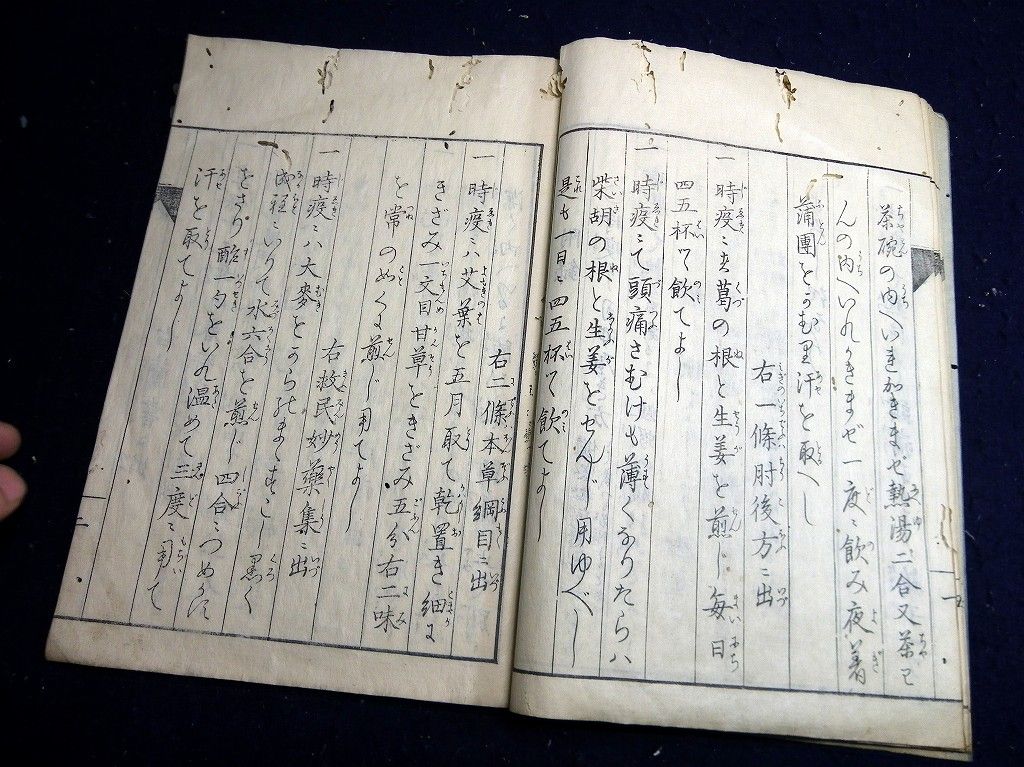 茶碗の内へいれかきまぜ熱湯二合又茶わ
んの内へいれかきまぜ一度ニ飲み夜着
蒲團をかむり汗を取へし
右一條肘後方ニ出
一 時疫ニハ葛の根と生姜を煎じ毎日
四五杯ツヽ飲てよし
一 時疫ニて頭痛さむけも薄くなりたらハ
柴胡の根と生姜をせんじ用ゆべし
是も一日ニ四五杯ツヽ飲てよし
右二條本草綱目ニ出
一 時疫ニハ艾葉を五月取て乾置き細に
きざみ一文目甘草をきざみ五分右二味
を常のめく煎じ用てよし
右救民妙藥集ニ出
一 時疫ニハ大麥をからのまゝすこし黒く
成程ニいりて水六合を煎じ四合ニつめかす
をさり酢一勺をいれ温めて三度ニ用て
汗を取てよし